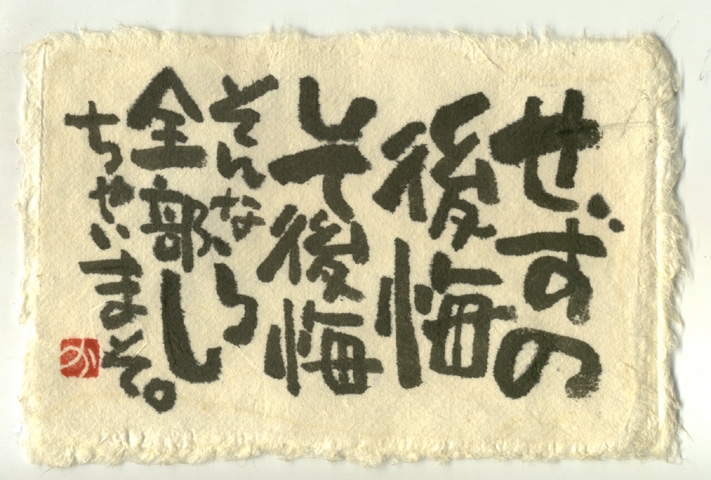 せずの
後悔
して後悔
そんなら
全部し
ちゃいまそ。